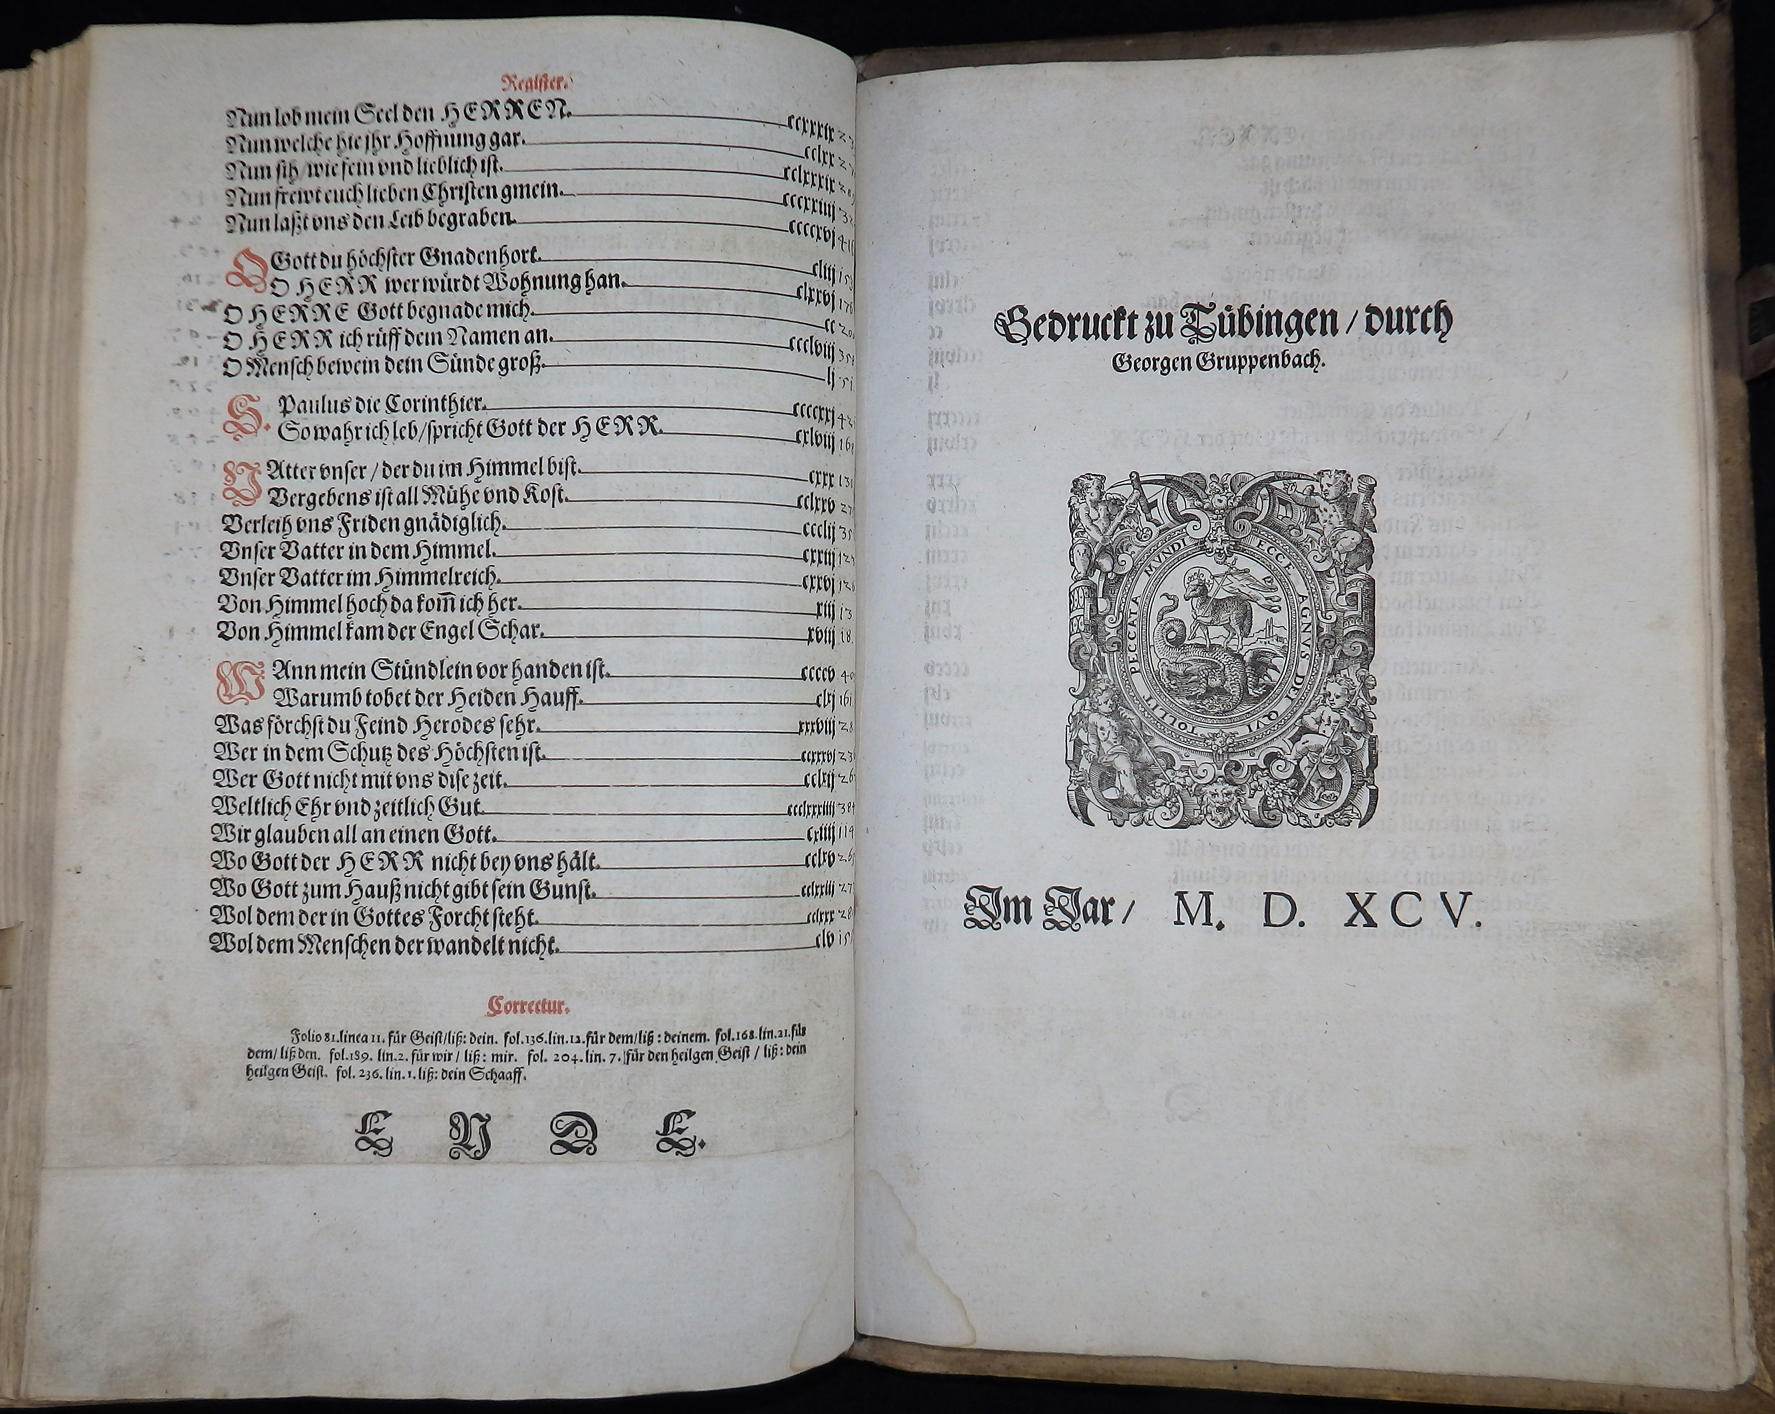 Register.
Nun lob mein Seel den HERREN. ccxxxix
Nun welche hie jhr Hoffnung gar. cclxx
Nun sih / wie fein vnd lieblich ist. cclxxxix
Nun frewt euch lieben Christen gmein. cccxxiiij
Nun laßt vns den Leib begraben. ccccxvj
O Gott du höchster Gnadenhort. cliij
O HERR wer würdt Wohnung han. clxxvj
O HERRE Gott begnade mich. cc
O HERR ich rüff dein Namen an. ccclviij
O Mensch bewein dein Sünde groß. lj
S. Paulus die Corinthier. ccccxxj
So wahr ich leb / spricht Gott der HERR. cxlviij
VAtter vnser / der du im Himmel bist. cxxx
Vergebens ist all Mühe vnd Kost. cclxxv
Verleih vns Friden gnädiglich. ccclij
Vnser Vatter in dem Himmel. cxxiij
Vnser Vatter im Himmelreich. cxxvj
Von Himmel hoch da kom̄ ich her. xiij
Von Himmel kam der Engel Schar. xviij
WAnn mein Stündlein vor handen ist. ccccv
Warumb tobet der Heiden Hauff. clxj
Was förchst du Feind Herodes sehr. xxxviij
Wer in dem Schutz des Höchsten ist. ccxxxvj
Wer Gott nicht mit vns dise zeit. cclxij
Weltlich Ehr vnd zeitlich Gut. ccclxxxiiij
Wir glauben all an einen Gott. cxiiij
Wo Gott der HERR nicht bey vns hält. cclxv
Wo Gott zum Hauß nicht gibt sein Gunst. cclxxiij
Wol dem der in Gottes Forcht steht. cclxxx
Wol dem Menschen der wandelt nicht. clv
Correctur.
Folio 81. linea 11. für Geist/ liß: dein. fol. 136. lin. 12. für dem/ liß: deinem. fol. 168. lin. 21. für
dem/ liß den. fol. 189. lin. 2. für wir / liß: mir. fol. 204. lin. 7. für den heilgen Geist / liß: dein
heilgen Geist. fol. 236. lin. 1. liß: dein Schaaff.
E N D E.
Gedruckt zu Tübingen / durch
Georgen Gruppenbach.
ECCE AGNVS DEI QVI TOLLIT PECCATA MVNDI
Im Jar / M. D. XCV.